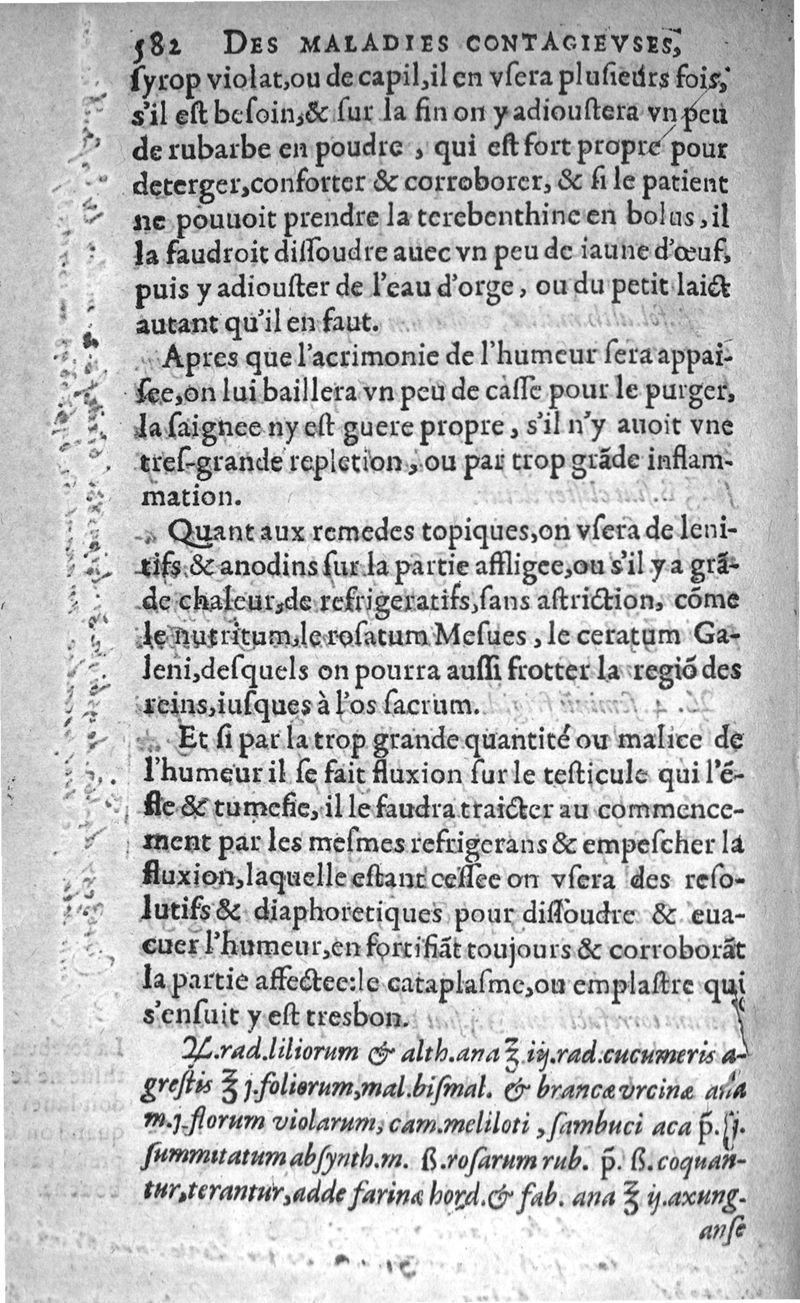 582 DES MALADIES CONTAGIEVSES,
ſyrop violat,ou de capil,il en vſera pluſieurs fois,
s'il eſt beſoin,& ſur la fin on y adiouſtera vn peu
de rubarbe en poudre , qui eſt fort propre pour
deterger,conforter & corroborer, & ſi le patient
ne pouuoit prendre la terebenthine en bolus,il
la faudroit diſſoudre auec vn peu de iaune d'œuf,
puis y adiouſter de l'eau d'orge, ou du petit laict
autant qu'il en faut.
Apres que l'acrimonie de l'humeur ſera appai-
ſee,on lui baillera vn peu de caſſe pour le purger,
la ſaignee ny eſt guere propre, s'il n'y auoit vne
treſ-grande repletion, ou par trop grãde inflam-
mation.
Quant aux remedes topiques,on vſera de leni-
tifs & anodins ſur la partie affligee,ou s'il y a grã-
de chaleur,de refrigeratifs,ſans aſtriction, cõme
le nutritum,le roſatum Meſues, le ceratum Ga-
leni,deſquels on pourra auſſi frotter la regiõ des
reins,iuſques à l'os ſacrum.
Et ſi par la trop grande quantité ou malice de
l'humeur il ſe fait fluxion ſur le teſticule qui l'ẽ-
fle & tumefie, il le faudra traicter au commence-
ment par les meſmes refrigerans & empeſcher la
fluxion,laquelle eſtant ceſſee on vſera des reſo-
lutifs & diaphoretiques pour diſſoudre & eua-
cuer l'humeur,en fortifiãt toujours & corroborãt
la partie affectee:le cataplaſme,ou emplaſtre qui
s'enſuit y eſt tresbon.
℞.rad.liliorum & alth.ana ℥ iij.rad.cucumeris a-
greſtis ℥ j.foliorum,mal.biſmal. & brancæ vrcinæ ana
m.j.florum violarum, cam.meliloti, ſambuci aca p̃. ſj.
ſummitatum abſynth.m. ß.roſarum rub. p̃. ß.coquan-
tur,terantur,adde farinæ hord.& fab. ana ℥ ij.axung.
anſe